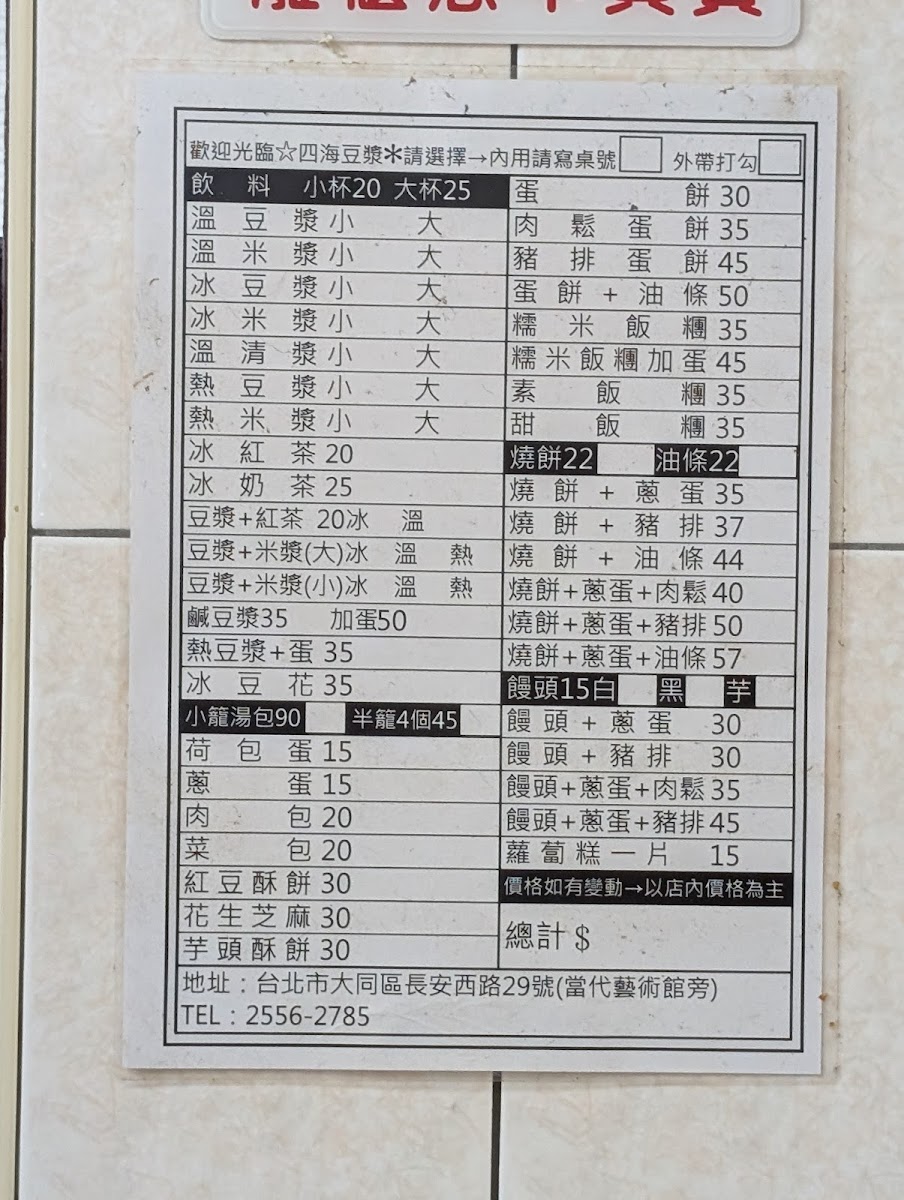 歡迎光臨☆四海豆漿＊請選擇→內用請寫桌號 外帶打勾
飲料 小杯20 大杯25
溫豆漿小 大
溫米漿小 大
冰豆漿小 大
冰米漿小 大
溫清漿小 大
熱豆漿小 大
熱米漿小 大
冰紅茶20
冰奶茶25
豆漿+紅茶 20冰 溫
豆漿+米漿(大)冰 溫 熱
豆漿+米漿(小)冰 溫 熱
鹹豆漿35 加蛋50
熱豆漿+蛋 35
冰豆花35
小籠湯包90 半籠4個45
荷包蛋15
蔥蛋15
肉包20
菜包20
紅豆酥餅30
花生芝麻30
芋頭酥餅30
蛋餅30
肉鬆蛋餅35
豬排蛋餅45
蛋餅+油條50
糯米飯糰35
糯米飯糰加蛋45
素飯糰35
甜飯糰35
燒餅22 油條22
燒餅+蔥蛋35
燒餅+豬排37
燒餅+油條44
燒餅+蔥蛋+肉鬆40
燒餅+蔥蛋+豬排50
燒餅+蔥蛋+油條57
饅頭15白 黑 芋
饅頭+蔥蛋 30
饅頭+豬排 30
饅頭+蔥蛋+肉鬆35
饅頭+蔥蛋+豬排45
蘿蔔糕一片 15
價格如有變動→以店內價格為主
總計$
地址：台北市大同區長安西路29號(當代藝術館旁)
TEL：2556-2785